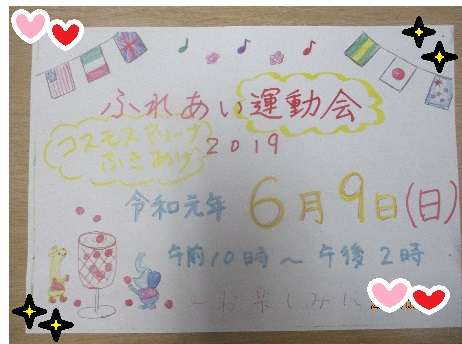 ふれあい運動会
コスモスヴィレッヂ
ふきあげ
2019
令和元年 6月9日(日)
午前10時〜午後2時
〜お楽しみに